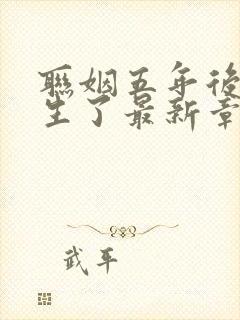 聯姻五年後
生了最新章
武平